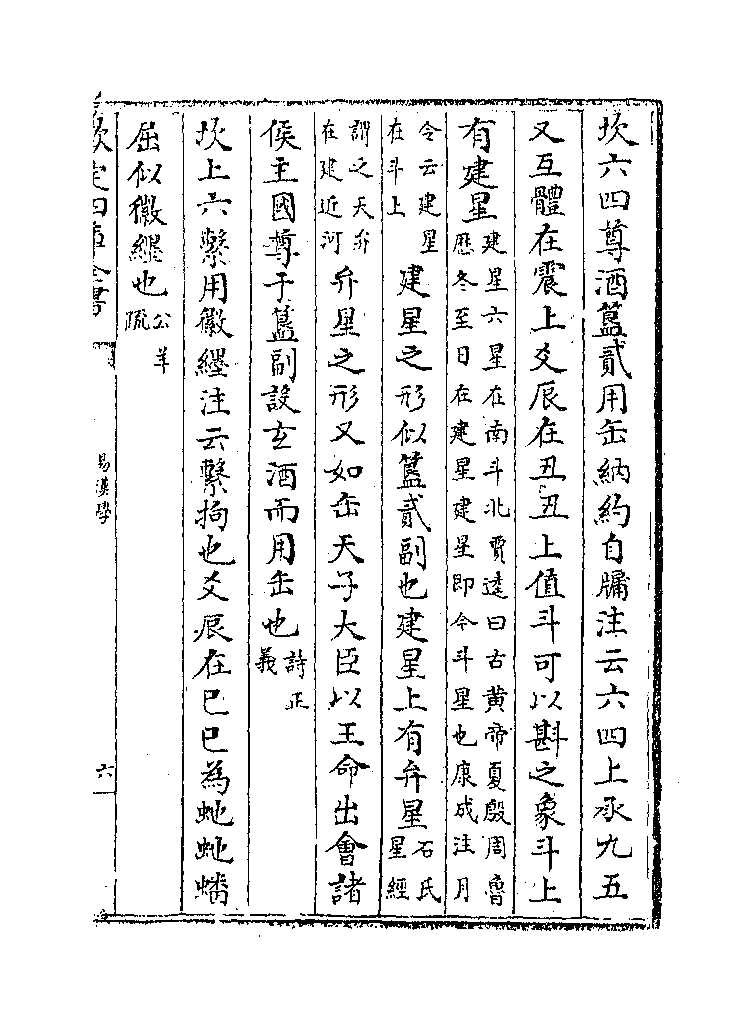 坎六四尊酒簋貳用缶納約自牖注云六四上承九五
又互體在震上爻辰在丑丑上值斗可以斟之象斗上
有建星
建星六星在南斗北賈逵曰古黄帝夏殷周魯
厯冬至日在建星建星即今斗星也康成注月
令云建星
在斗上
建星之形似簋貳副也建星上有弁星
石氏
星經
謂之天弁
在建近河
弁星之形又如缶天子大臣以王命出會諸
侯主國尊于簋副設玄酒而用缶也
詩正
義
坎上六繫用徽纆注云繫拘也爻辰在巳巳為虵虵蟠
屈似徽纆也
公羊
疏
欽定四庫全書
易漢學
六